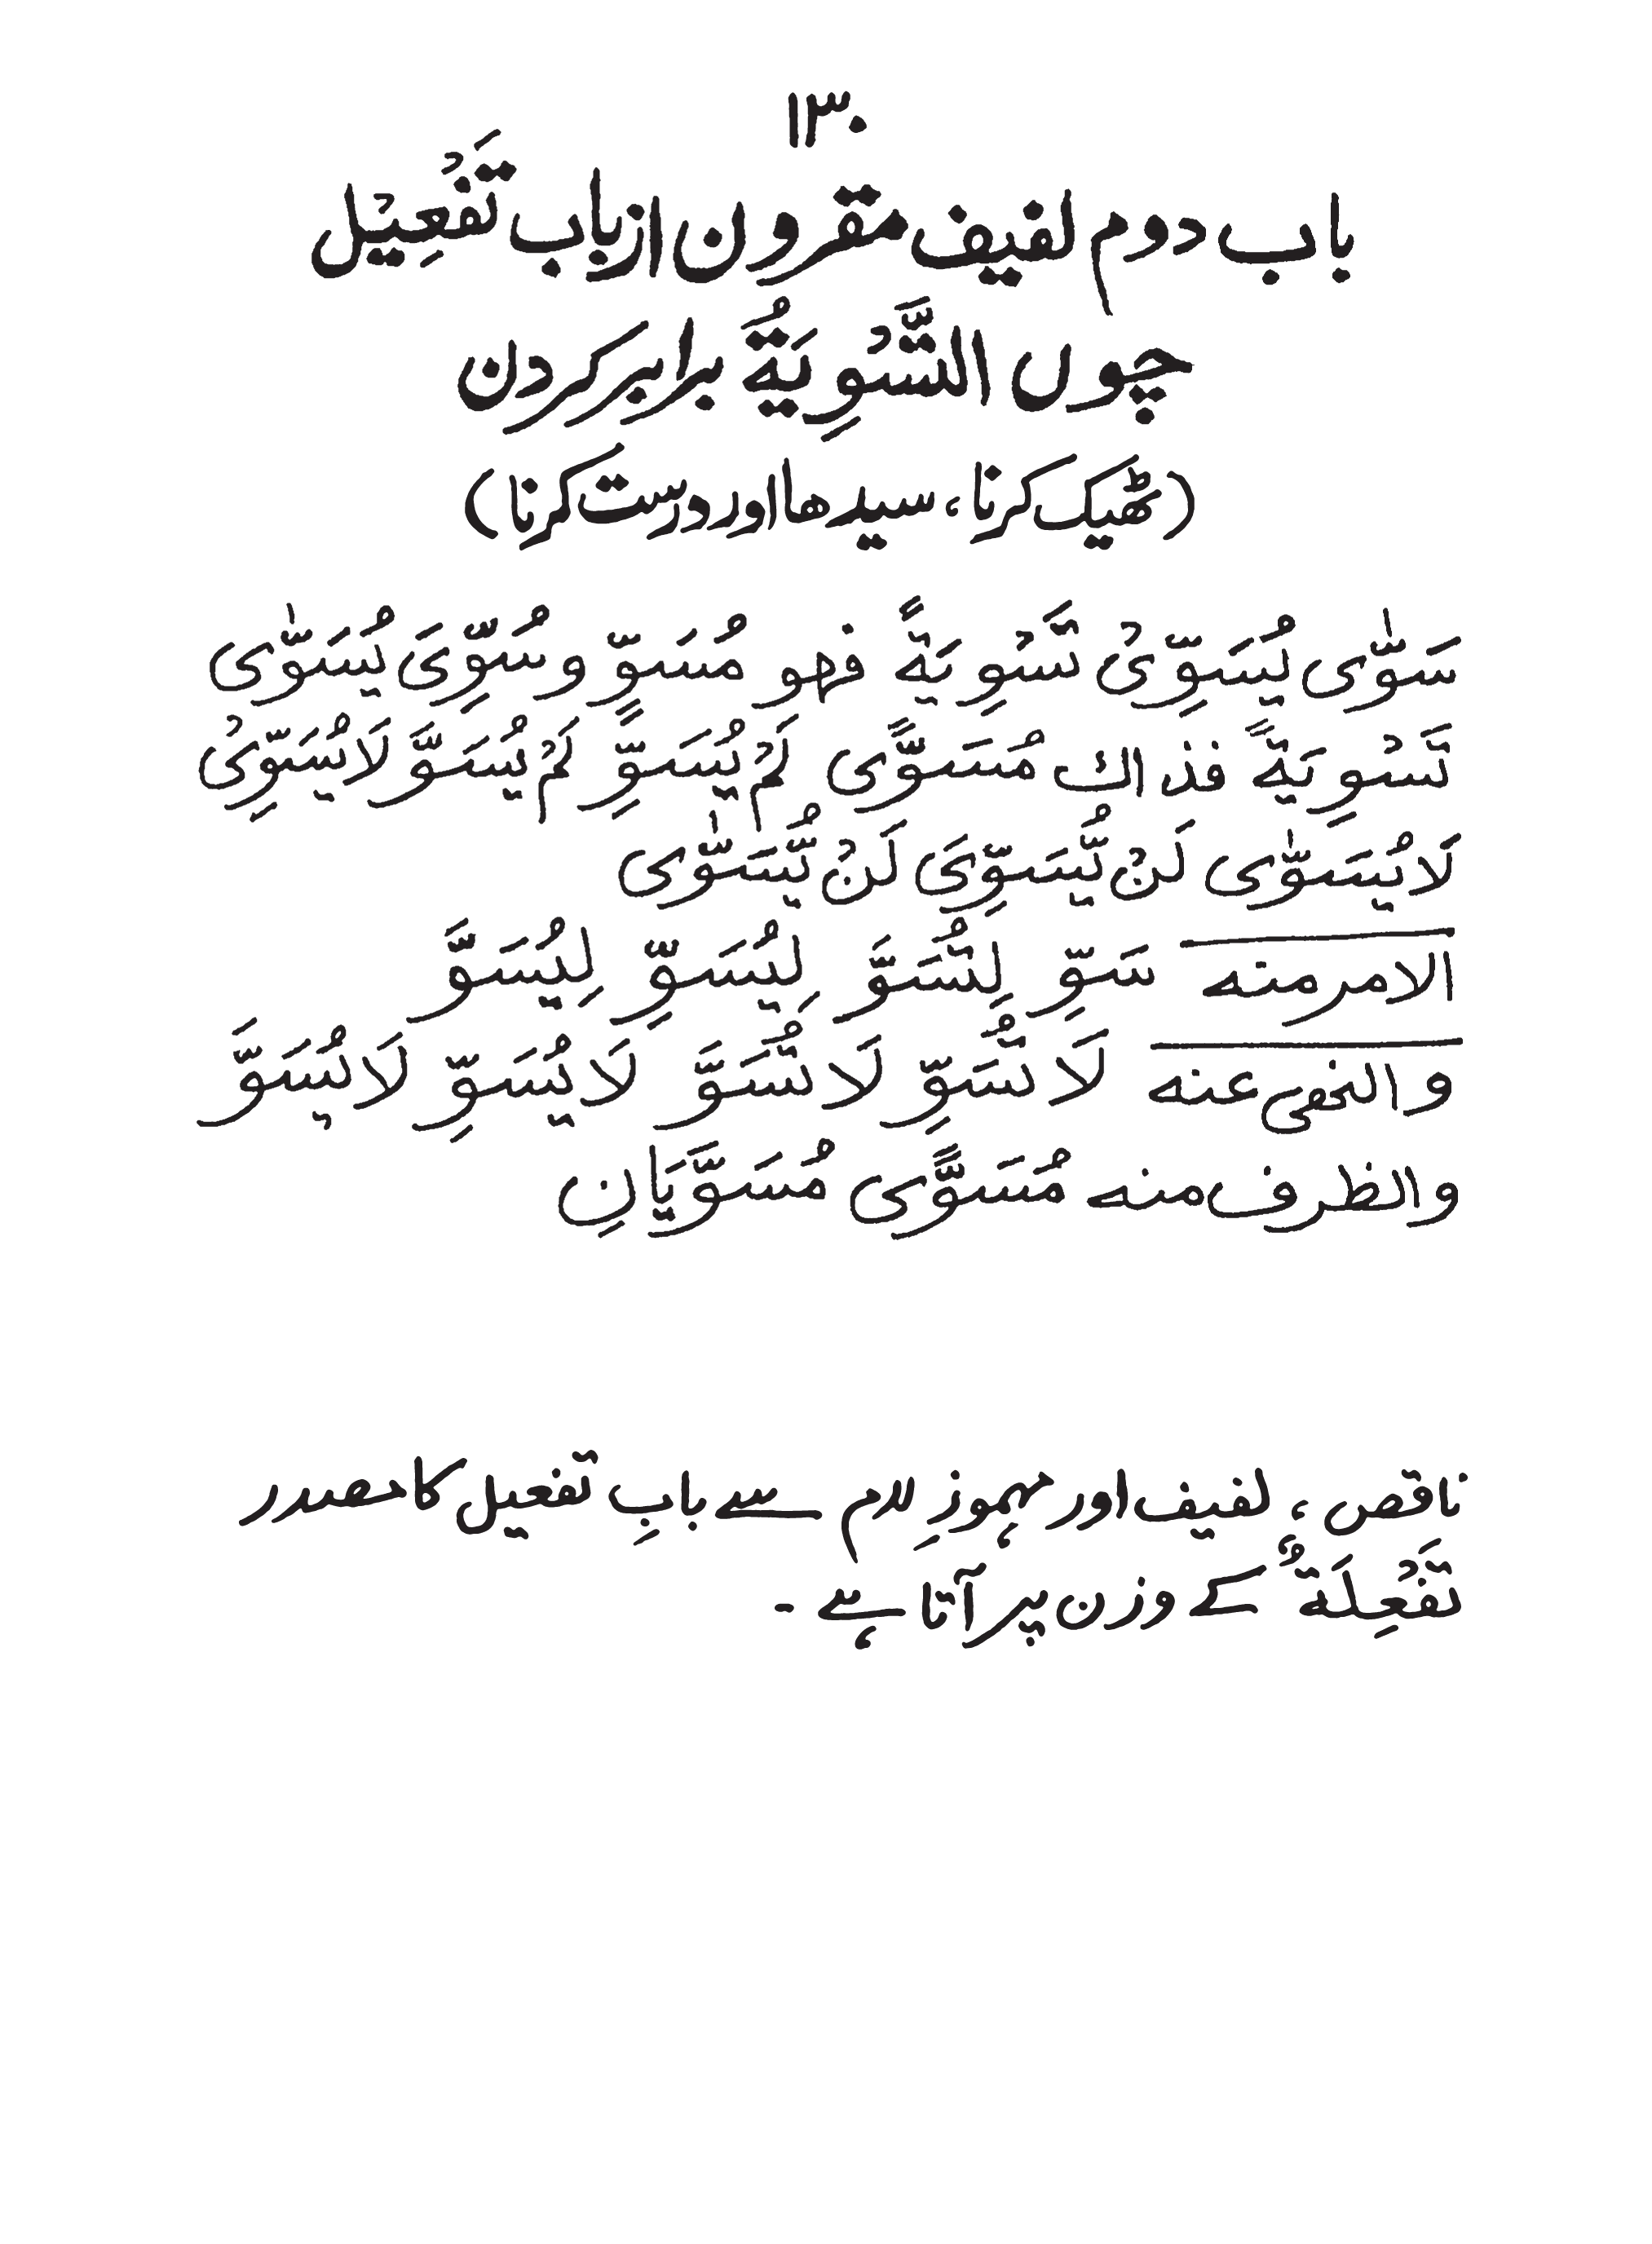 ۱۳۰
باب دوم لفیف مقرون از باب تَفْعِیْل
چوں التَّسْوِیَةُ برابر کردن
(ٹھیک کرنا، سیدھا اور درست کرنا)
سَوّٰی یُسَوِّیْ تَسْوِیَةً فهو مُسَوٍّ و سُوِّیَ یُسَوّٰی
تَسْوِیَةً فذاك مُسَوًّی لَمْ یُسَوِّ لَمْ یُسَوَّ لَا یُسَوِّیْ
لَا یُسَوّٰی لَنْ یُّسَوِّیَ لَنْ یُّسَوّٰی
الامر منه سَوِّ لِتُسَوَّ لِیُسَوِّ لِیُسَوَّ
والنهی عنه لَا تُسَوِّ لَا تُسَوَّ لَا یُسَوِّ لَا یُسَوَّ
والظرف منه مُسَوًّی مُسَوَّیَانِ
ناقص، لفیف اور مہموزِ لام سے بابِ تفعیل کا مصدر
تَفْعِلَةٌ کے وزن پر آتا ہے ۔